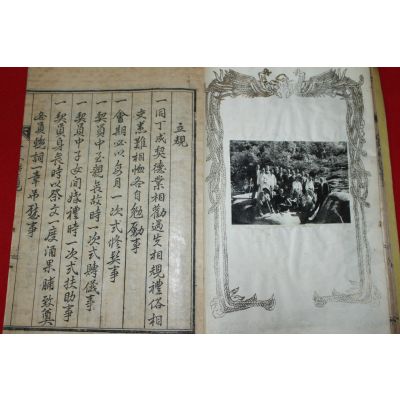 立規
一同丁成契德業相勸過失相規禮俗相
交患難相恤各自勉勵事
一會期必以每月一次式修契事
一契員中至親喪故時一次式賻儀事
一契員中子女間婚禮時一次式扶助事
一契員身喪時以祭文一度酒果脯致奠
每員輓詞一章吊慰事